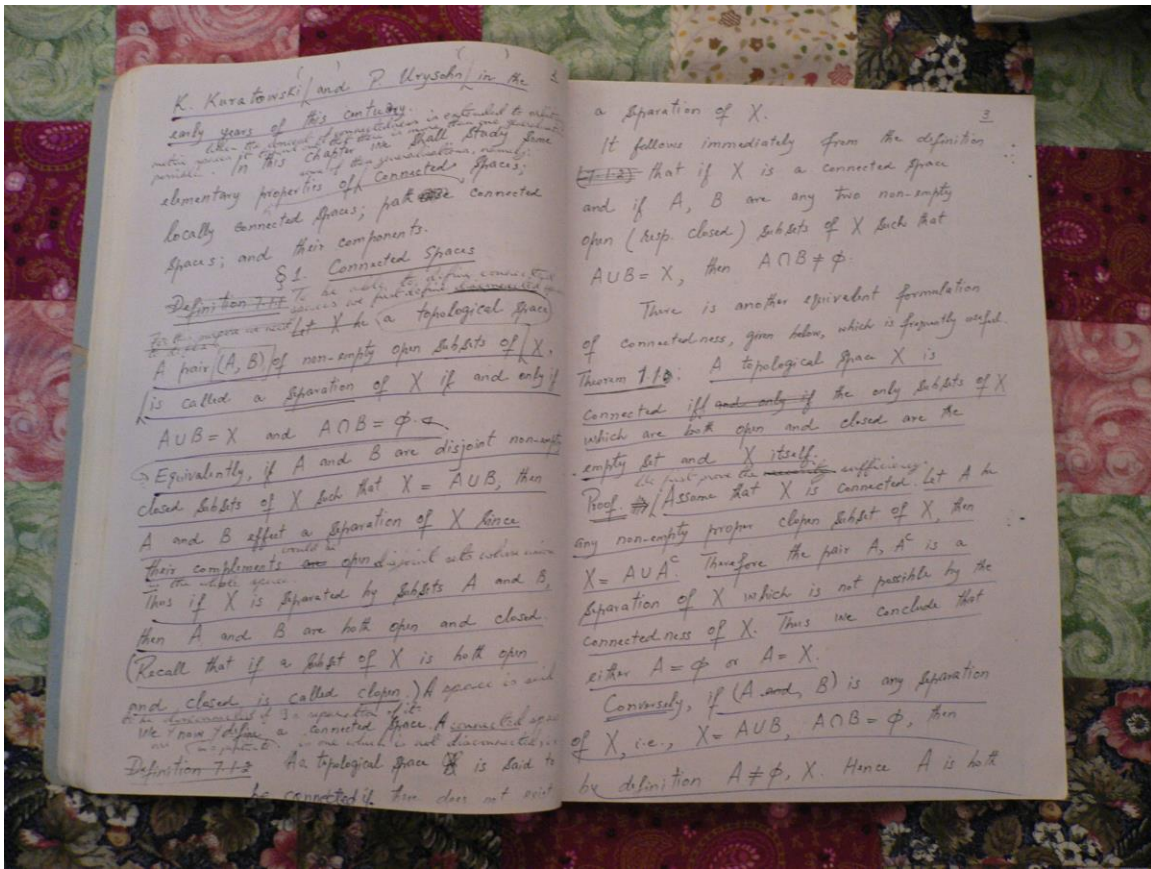 2
K. Kuratowski and P. Urysohn in the
early years of this century.
When the concept of connectedness is extended to
metric spaces it turns out that there is more than one
possible. In this chapter we shall study some
of these generalizations, namely:
elementary properties of connected spaces;
locally connected spaces; path connected
spaces; and their components.
§ 1. Connected Spaces
To be able to define connected
Definition 7.1.1 spaces we first define disconnected
For this purpose we need Let X be a topological space
A pair (A, B) of non-empty open subsets of X,
is called a separation of X if and only if
A ∪ B = X and A ∩ B = φ.
Equivalently, if A and B are disjoint non-empty
closed subsets of X such that X = A ∪ B, then
A and B effect a separation of X since
would be
their complements are open disjoint sets whose union
is the whole space
Thus if X is separated by subsets A and B,
then A and B are both open and closed.
(Recall that if a subset of X is both open
and closed, is called clopen.) A space is said
to be disconnected if ∃ a separation of it.
We now define a connected space. A connected space
is one which is not disconnected
Definition 7.1.2 A a topological space X is said to
be connected if there does not exist
3
a separation of X.
It follows immediately from the definition
(7.1.2) that if X is a connected space
and if A, B are any two non-empty
open (resp. closed) subsets of X such that
A ∪ B = X, then A ∩ B ≠ φ.
There is another equivalent formulation
of connectedness, given below, which is frequently useful.
Theorem 7.1.3: A topological space X is
connected iff and only if the only subsets of X
which are both open and closed are the
empty set and X itself.
We first prove the necessity sufficiency.
Proof. ⇒ Assume that X is connected. Let A be
any non-empty proper clopen subset of X, then
X = A ∪ Aᶜ. Therefore the pair A, Aᶜ is a
separation of X which is not possible by the
connectedness of X. Thus we conclude that
either A = φ or A = X.
Conversely, if (A and, B) is any separation
of X, i.e., X = A ∪ B, A ∩ B = φ, then
by definition A ≠ φ, X. Hence A is both